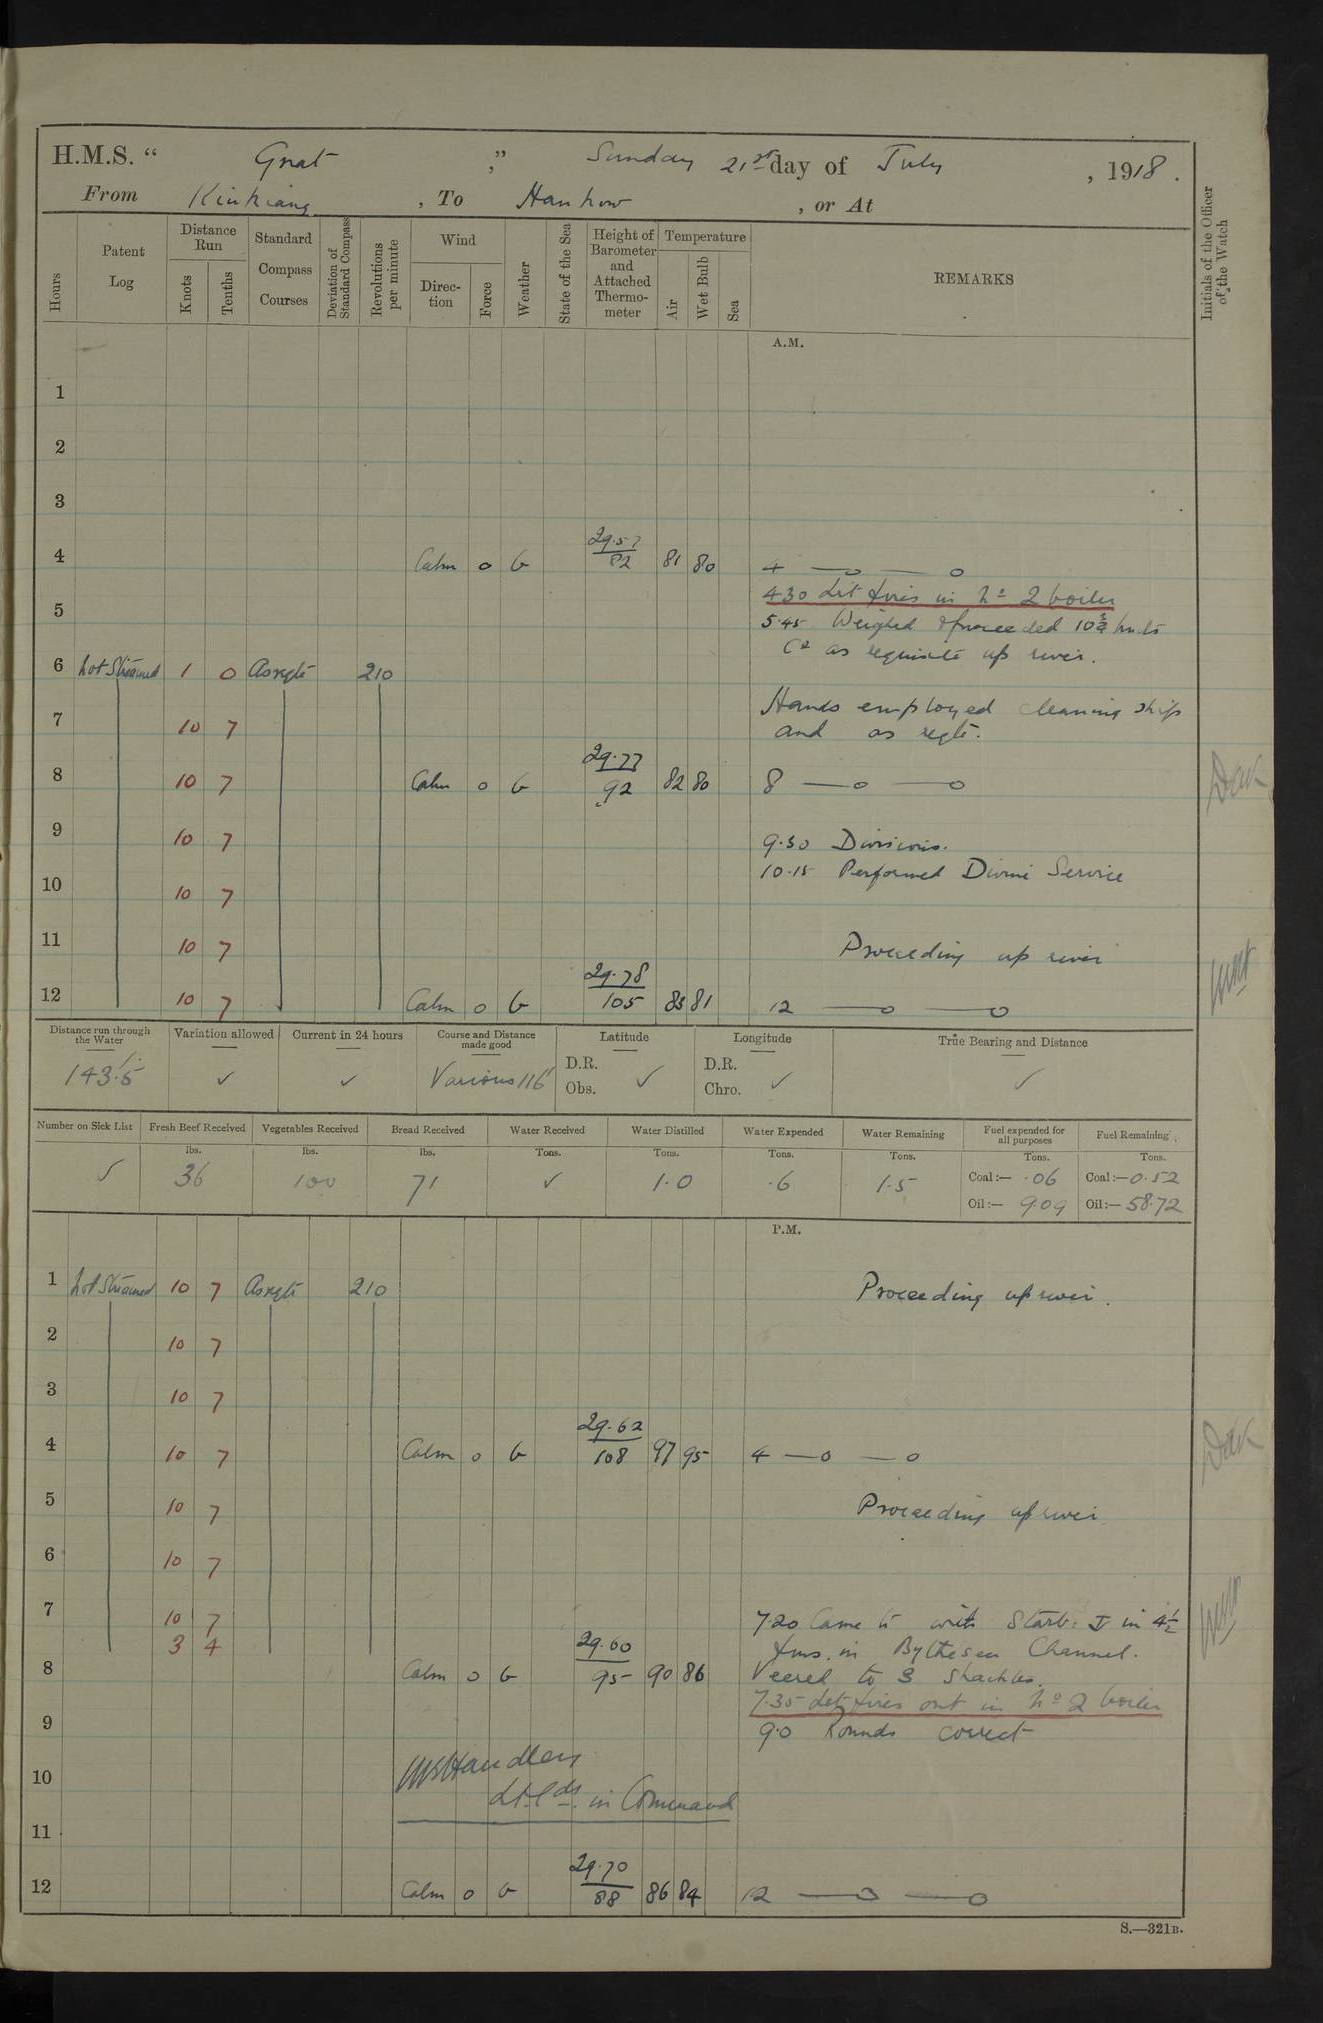 H.M.S. “ Gnat ”, Sunday 21st day of July, 1918.
From Kiukiang, To Hankow, or At
Hours
Patent Log
Distance Run
Knots
Tenths
Standard Compass Courses
Deviation of Standard Compass
Revolutions per minute
Wind
Direction
Force
Weather
State of the Sea
Height of Barometer and Attached Thermometer
Temperature
Air
Wet Bulb
Sea
REMARKS
Initials of the Officer of the Watch
A.M.
1
2
3
4 Calm 0 b 29.57/82 81 80 4 —o —o
430 Lit fires in No 2 boiler
5 5.45 Weighed & proceeded 10¾ knots
Co as requisite up river.
6 Not Streamed 1 0 As reqte 210
7 10 7 Hands employed cleaning ship
and as reqte.
8 10 7 Calm 0 b 29.77/92 82 80 8 —o —o
9 10 7 9.30 Divisions.
10.15 Performed Divine Service
10 10 7
11 10 7 Proceeding up river
12 10 7 Calm 0 b 29.78/105 83 81 12 —o —o
Distance run through the Water
143.5
Variation allowed
✓
Current in 24 hours
✓
Course and Distance made good
Various 116'
Latitude
D.R.
Obs. ✓
Longitude
D.R.
Chro. ✓
True Bearing and Distance
✓
Number on Sick List
✓
Fresh Beef Received
lbs.
36
Vegetables Received
lbs.
100
Bread Received
lbs.
71
Water Received
Tons.
✓
Water Distilled
Tons.
1.0
Water Expended
Tons.
.6
Water Remaining
Tons.
1.5
Fuel expended for all purposes
Tons.
Coal:— .06
Oil:— 9.09
Fuel Remaining
Tons.
Coal:— 0.52
Oil:— 58.72
P.M.
1 Not Streamed 10 7 As reqte 210 Proceeding up river.
2 10 7
3 10 7
4 10 7 Calm 0 b 29.62/108 97 95 4 —o —o
5 10 7 Proceeding up river
6 10 7
7 10 7 7.20 Came to with Starb: in 4½
3 4 fms. in Bythesea Channel.
8 Calm 0 b 29.60/95 90 86 Veered to 3 shackles.
7.35 Let fires out in No 2 boiler
9 9.0 Rounds correct
10
Lt. Cdr. in Command
11
12 Calm 0 b 29.70/88 86 84 12 —o —o
S.—321B.